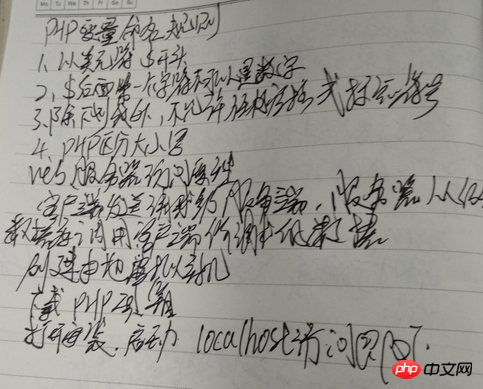 PHP变量命名规则
1、以美元符 $开头
2、$后面第一个字符不可以是数字
3、除下划线外、不允许 空格 标点符号
4、PHP区分大小写
web 服务器访问原理
客户端发送请求给服务端，服务器从
数据库 调用客户端 数据
创建 虚拟主机
下载 PHP
打开 安装. 启动 localhost访问即可.
php 中文网